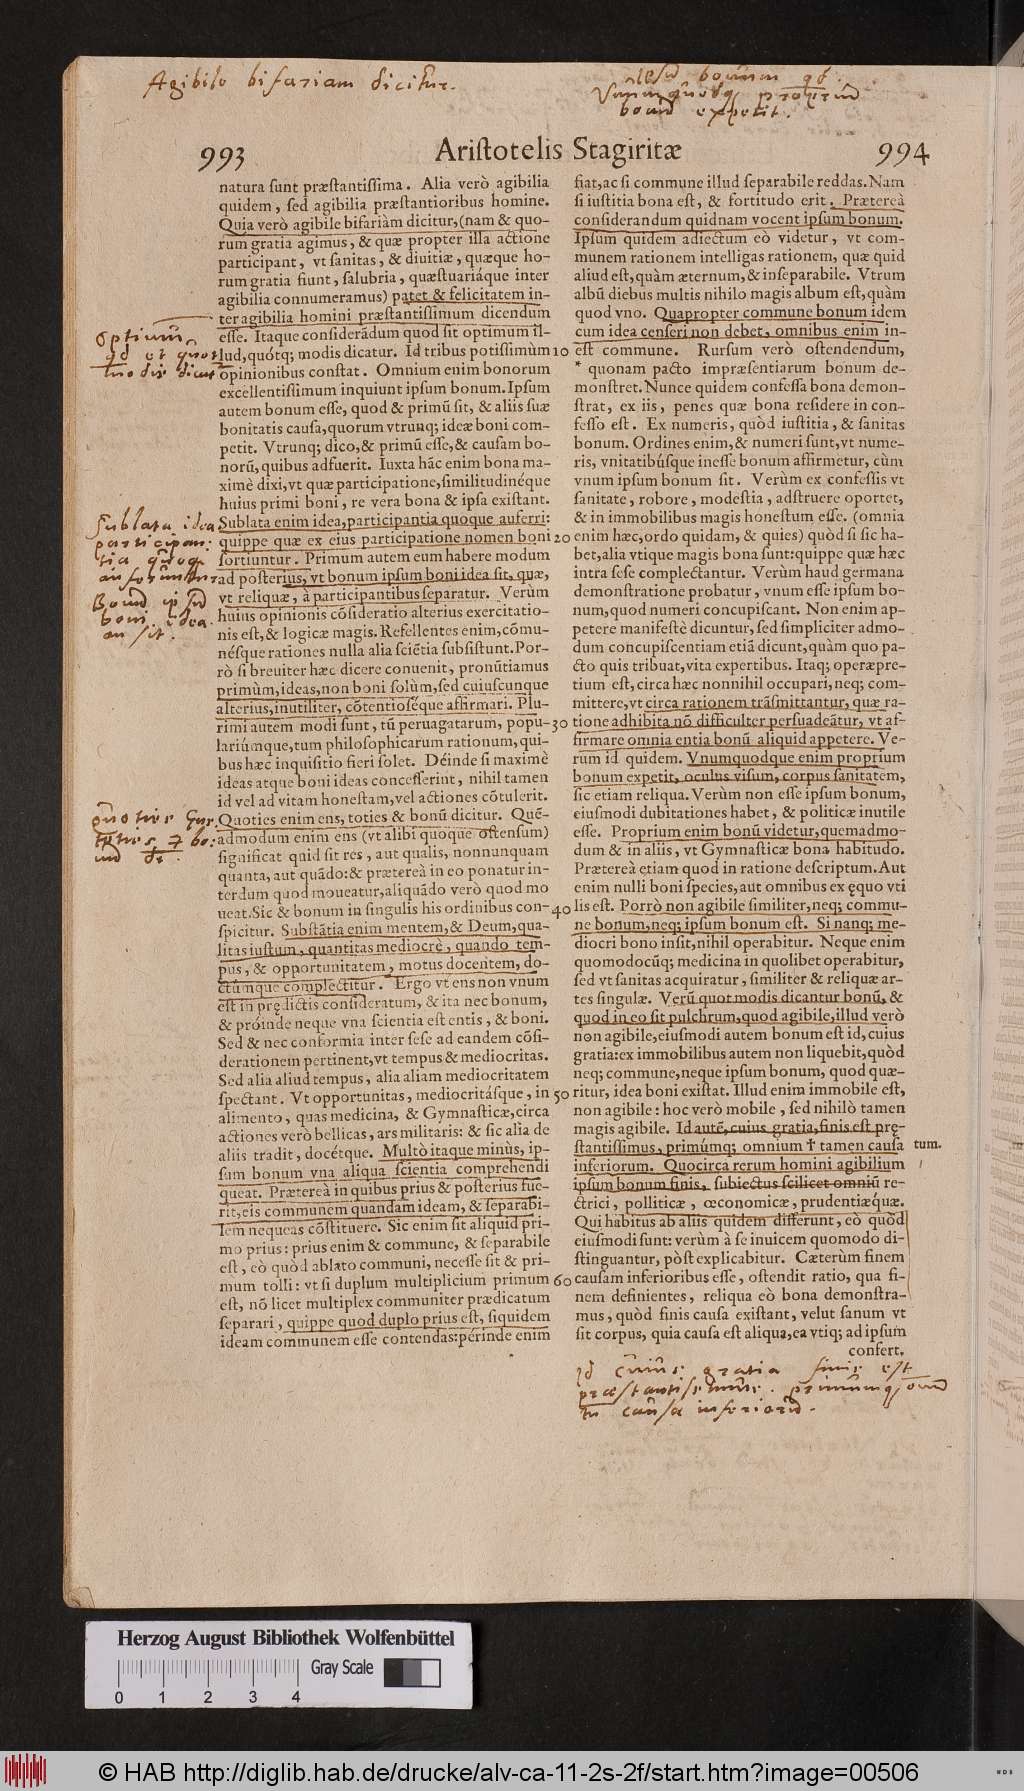 Agibile bifariam dicitur.
bonum qd
Unumquodq; proprium
bonum expetit.
993 Ariſtotelis Stagiritæ 994
natura ſunt præſtantiſſima. Alia verò agibilia
quidem, ſed agibilia præſtantioribus homine.
Quia verò agibile bifariàm dicitur,(nam & quo-
rum gratia agimus, & quæ propter illa actione
participant, vt ſanitas, & diuitiæ, quæque ho-
rum gratia fiunt, ſalubria, quæſtuariáque inter
agibilia connumeramus) patet & felicitatem in-
ter agibilia homini præſtantiſſimum dicendum
eſſe. Itaque conſiderãdum quod ſit optimum il-
lud,quótq; modis dicatur. Id tribus potiſſimùm 10
opinionibus conſtat. Omnium enim bonorum
excellentiſſimum inquiunt ipſum bonum. Ipſum
autem bonum eſſe, quod & primũ ſit, & aliis ſuæ
bonitatis cauſa,quorum vtrunq; ideæ boni com-
petit. Vtrunq; dico,& primũ eſſe,& cauſam bo-
norũ,quibus adfuerit. Iuxta hãc enim bona ma-
ximè dixi,vt quæ participatione,ſimilitudinéque
huius primi boni, re vera bona & ipſa exiſtant.
Sublata enim idea,participantia quoque auferri:
quippe quæ ex eius participatione nomen boni 20
ſortiuntur. Primum autem eum habere modum
ad poſterius, vt bonum ipſum boni idea ſit, quæ,
vt reliquæ, à participantibus ſeparatur. Verùm
huius opinionis cõſideratio alterius exercitatio-
nis eſt,& logicæ magis. Refellentes enim,cõmu-
nésque rationes nulla alia ſciẽtia ſubſiſtunt.Por-
rò ſi breuiter hæc dicere conuenit, pronũtiamus
primùm,ideas,non boni ſolùm,ſed cuiuſcunque
alterius,inutiliter, cõtentioſéque affirmari. Plu-
rimi autem modi ſunt, tũ peruagatarum, popu- 30
lariúmque,tum philoſophicarum rationum,qui-
bus hæc inquiſitio fieri ſolet. Déinde ſi maximè
ideas atque boni ideas conceſſerint, nihil tamen
id vel ad vitam honeſtam,vel actiones cõtulerit.
Quoties enim ens, toties & bonũ dicitur. Quẽ-
admodum enim ens (vt alibi quoque oſtenſum)
ſignificat quid ſit res, aut qualis, nonnunquam
quanta, aut quãdo:& prætereà in eo ponatur in-
terdum quod moueatur,aliquãdo verò quod mo
ueat.Sic & bonum in ſingulis his ordinibus con- 40
ſpicitur. Subſtãtia enim mentem,& Deum,qua-
litas iuſtum, quantitas mediocrè, quando tem-
pus, & opportunitatem, motus docentem, do-
ctúmque complectitur. Ergo vt ens non vnum
eſt in prędictis conſideratum, & ita nec bonum,
& próinde neque vna ſcientia eſt entis, & boni.
Sed & nec conformia inter ſeſe ad eandem cõſi-
derationem pertinent,vt tempus & mediocritas.
Sed alia aliud tempus, alia aliam mediocritatem
ſpectant. Vt opportunitas, mediocritáſque, in 50
alimento, quas medicina, & Gymnaſticæ,circa
actiones verò bellicas, ars militaris: & ſic alia de
aliis tradit, docétque. Multò itaque minùs, ip-
ſum bonum vna aliqua ſcientia comprehendi
queat. Præterea in quibus prius & poſterius fue-
rit,eis communem quandam ideam, & ſeparabi-
lem nequeas cõſtituere. Sic enim ſit aliquid pri-
mo prius: prius enim & commune, & ſeparabile
eſt, eò quòd ablato communi, neceſſe ſit & pri-
mum tolli: vt ſi duplum multiplicium primum 60
eſt, nõ licet multiplex communiter prædicatum
ſeparari, quippe quod duplo prius eſt, ſiquidem
ideam communem eſſe contendas:périnde enim
optimum
qd et quot
modis dicatur
Sublata idea
participan:
tia quoq
auferuntur
Bonum ipsum
boni idea
an sit.
quoties ens
toties & bo:
num dr.
fiat,ac ſi commune illud ſeparabile reddas. Nam
ſi iuſtitia bona eſt, & fortitudo erit. Præterea
conſiderandum quidnam vocent ipſum bonum.
Ipſum quidem adiectum eò videtur, vt com-
munem rationem intelligas rationem, quæ quid
aliud eſt,quàm æternum,& inſeparabile. Vtrum
albũ diebus multis nihilo magis album eſt,quàm
quod vno. Quapropter commune bonum idem
cum idea cenſeri non debet, omnibus enim in-
eſt commune. Rurſum verò oſtendendum,
* quonam pacto impræſentiarum bonum de-
monſtret. Nunc equidem confeſſa bona demon-
ſtrat, ex iis, penes quæ bona reſidere in con-
feſſo eſt. Ex numeris, quòd iuſtitia, & ſanitas
bonum. Ordines enim,& numeri ſunt,vt nume-
ris, vnitatibúſque ineſſe bonum affirmetur, cùm
vnum ipſum bonum ſit. Verùm ex confeſſis vt
ſanitate, robore, modeſtia, adſtruere oportet,
& in immobilibus magis honeſtum eſſe. (omnia
enim hæc,ordo quidam, & quies) quòd ſi ſic ha-
bet,alia vtique magis bona ſunt:quippe quæ hæc
intra ſeſe complectantur. Verùm haud germana
demonſtratione probatur, vnum eſſe ipſum bo-
num,quod numeri concupiſcant. Non enim ap-
petere manifeſtè dicuntur, ſed ſimpliciter admo-
dum concupiſcentiam etiã dicunt,quàm quo pa-
cto quis tribuat,vita expertibus. Itaq; operæpre-
tium eſt, circa hæc nonnihil occupari,neq; com-
mittere,vt circa rationem trãſmittantur, quæ ra-
tione adhibita nõ difficulter perſuadeãtur, vt af-
firmare omnia entia bonũ aliquid appetere. Ve-
rum id quidem. Vnumquodque enim proprium
bonum expetit, oculus viſum, corpus ſanitatem,
ſic etiam reliqua. Verùm non eſſe ipſum bonum,
eiuſmodi dubitationes habet, & politicæ inutile
eſſe. Proprium enim bonũ videtur,quemadmo-
dum & in aliis, vt Gymnaſticæ bona habitudo.
Præterea etiam quod in ratione deſcriptum. Aut
enim nulli boni ſpecies,aut omnibus ex ęquo vti
lis eſt. Porrò non agibile ſimiliter,neq; commu-
ne bonum,neq; ipſum bonum eſt. Si nanq; me-
diocri bono inſit,nihil operabitur. Neque enim
quomodocũq; medicina in quolibet operabitur,
ſed vt ſanitas acquiratur, ſimiliter & reliquæ ar-
tes ſingulæ. Verũ quot modis dicantur bonũ, &
quod in eo ſit pulchrum,quod agibile,illud verò
non agibile,eiuſmodi autem bonum eſt id,cuius
gratia:ex immobilibus autem non liquebit,quòd
neq; commune,neque ipſum bonum, quod quæ-
ritur, idea boni exiſtat. Illud enim immobile eſt,
non agibile: hoc verò mobile, ſed nihilò tamen
magis agibile. Id autẽ,cuius gratia,finis eſt prę-
ſtantiſſimus,primúmq; omnium † tamen cauſa tum.
inferiorum. Quocirca rerum homini agibilium
ipſum bonum finis, ſubiectus ſcilicet omniũ re-
ctrici, polliticæ, œconomicæ, prudentiæq́uæ.
Qui habitus ab aliis quidem differunt, eò quòd
eiuſmodi ſunt: verùm à ſe inuicem quomodo di-
ſtinguantur, pòſt explicabitur. Cæterùm finem
cauſam inferioribus eſſe, oſtendit ratio, qua fi-
nem definientes, reliqua eò bona demonſtra-
mus, quòd finis cauſa exiſtant, velut ſanum vt
ſit corpus, quia cauſa eſt aliqua,ea vtiq; ad ipſum
confert.
Id cuius gratia finis est
præstantissimus. primumq; omni
tm causa inferiorum.
Herzog August Bibliothek Wolfenbüttel
Gray Scale
0 1 2 3 4
© HAB http://diglib.hab.de/drucke/alv-ca-11-2s-2f/start.htm?image=00506